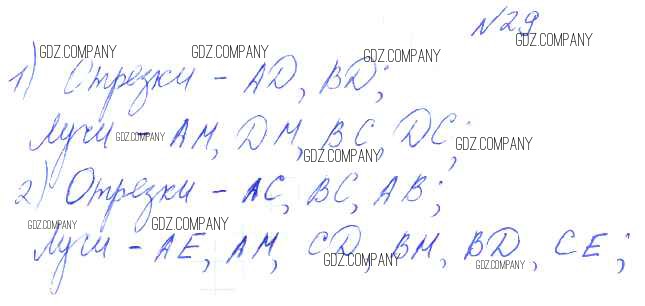 №29
GDZ.COMPANY GDZ.COMPANY GDZ.COMPANY GDZ.COMPANY
1) Отрезки - AD, BD;
Лучи - AM, DM, BC, DC;
GDZ.COMPANY GDZ.COMPANY GDZ.COMPANY
2) Отрезки - AC, BC, AB;
GDZ.COMPANY GDZ.COMPANY
Лучи - AE, AM, CD, BM, BD, CE;
GDZ.COMPANY GDZ.COMPANY